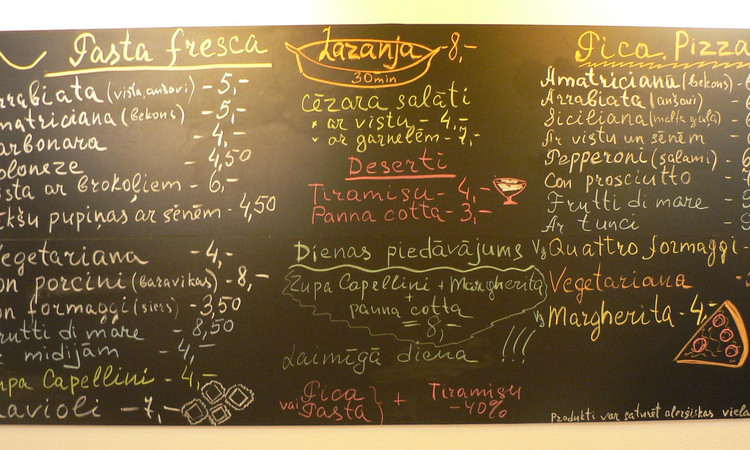 Pasta fresca
Arrabiata (vista, anšovi) - 5,-
Amatriciana (bekons) - 5,-
Carbonara - 4,-
Boloneze - 4,50
Vista ar brokoļiem - 6,-
Cūkšu pupiņas ar sēnēm - 4,50
Vegetariana - 4,-
Con porcini (baravikas) - 8,-
Con formaggi (siers) - 3,50
Frutti di mare - 8,50
midijām - 4,-
Zupa Capellini - 4,-
Ravioli - 7,-
Lazanja - 8,-
30 min
cēzara salāti
* ar vistu - 4,-
* ar garnelēm - 7,-
Deserti
Tiramisu - 4,-
Panna cotta - 3,-
Dienas piedāvājums
Zupa Capellini + Margherita
+
panna cotta
= 8,-
Laimīgā diena !!!
Pica
vai Pasta } + Tiramisu
- 40%
Pica. Pizza
Amatriciana (bekons) -
Arrabiata (anšovi) -
Siciliana (malta gaļa) -
Ar vistu un sēnēm -
Pepperoni (salami) -
Con prosciutto -
Frutti di mare -
Ar tunci -
Vg Quattro formaggi -
Vegetariana
Vg Margherita - 4,-
Produkti var saturēt alerģiskas vielas